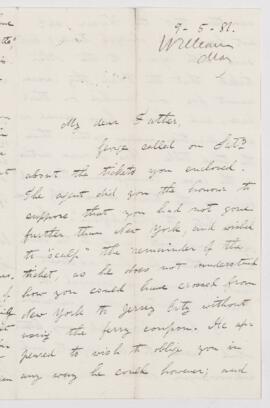 9-5-81.
William
My dear Father,
George called on Satd
about the tickets you enclosed.
The agent did you the honour to
suppose that you had not gone
further than New York, and wished
to "scalp" the remainder of the
ticket, as he does not understand
how you could have crossed from
New York to Jersey City without
using the ferry coupon. He ap-
peared to wish to oblige you in
any way he could however; and